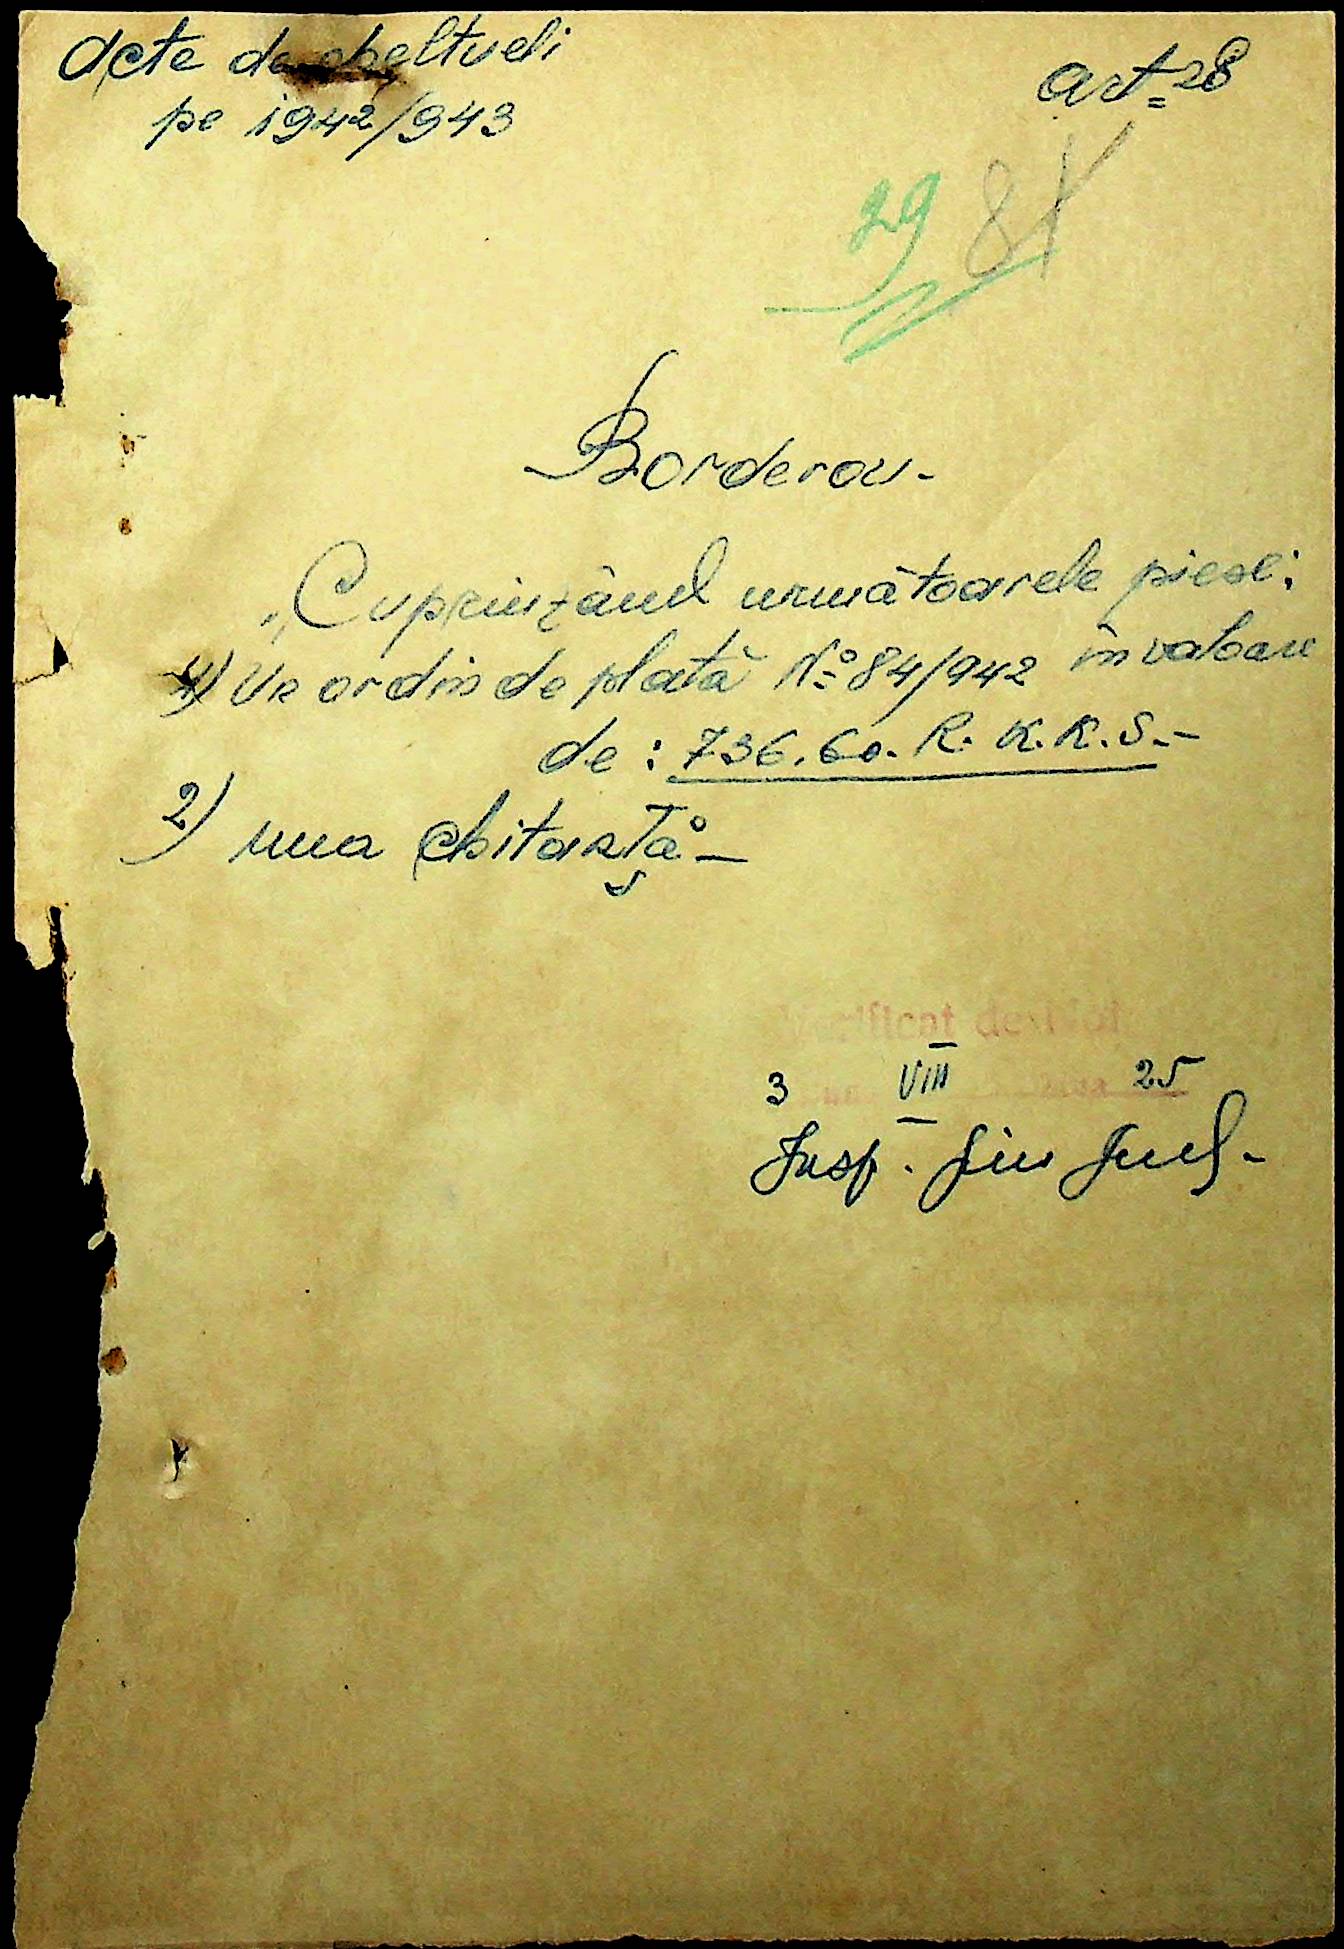 Acte de cheltueli
pe 1942/943
art. 28
29 81
Borderou-
"Cuprinzând următoarele piese:
1) Un ordin de plată No 84/942 în valoare
de: 736.60. R. K. K. S.-
2) una chitanță-
Verificat de Noi
3 VIII 25
Insp.